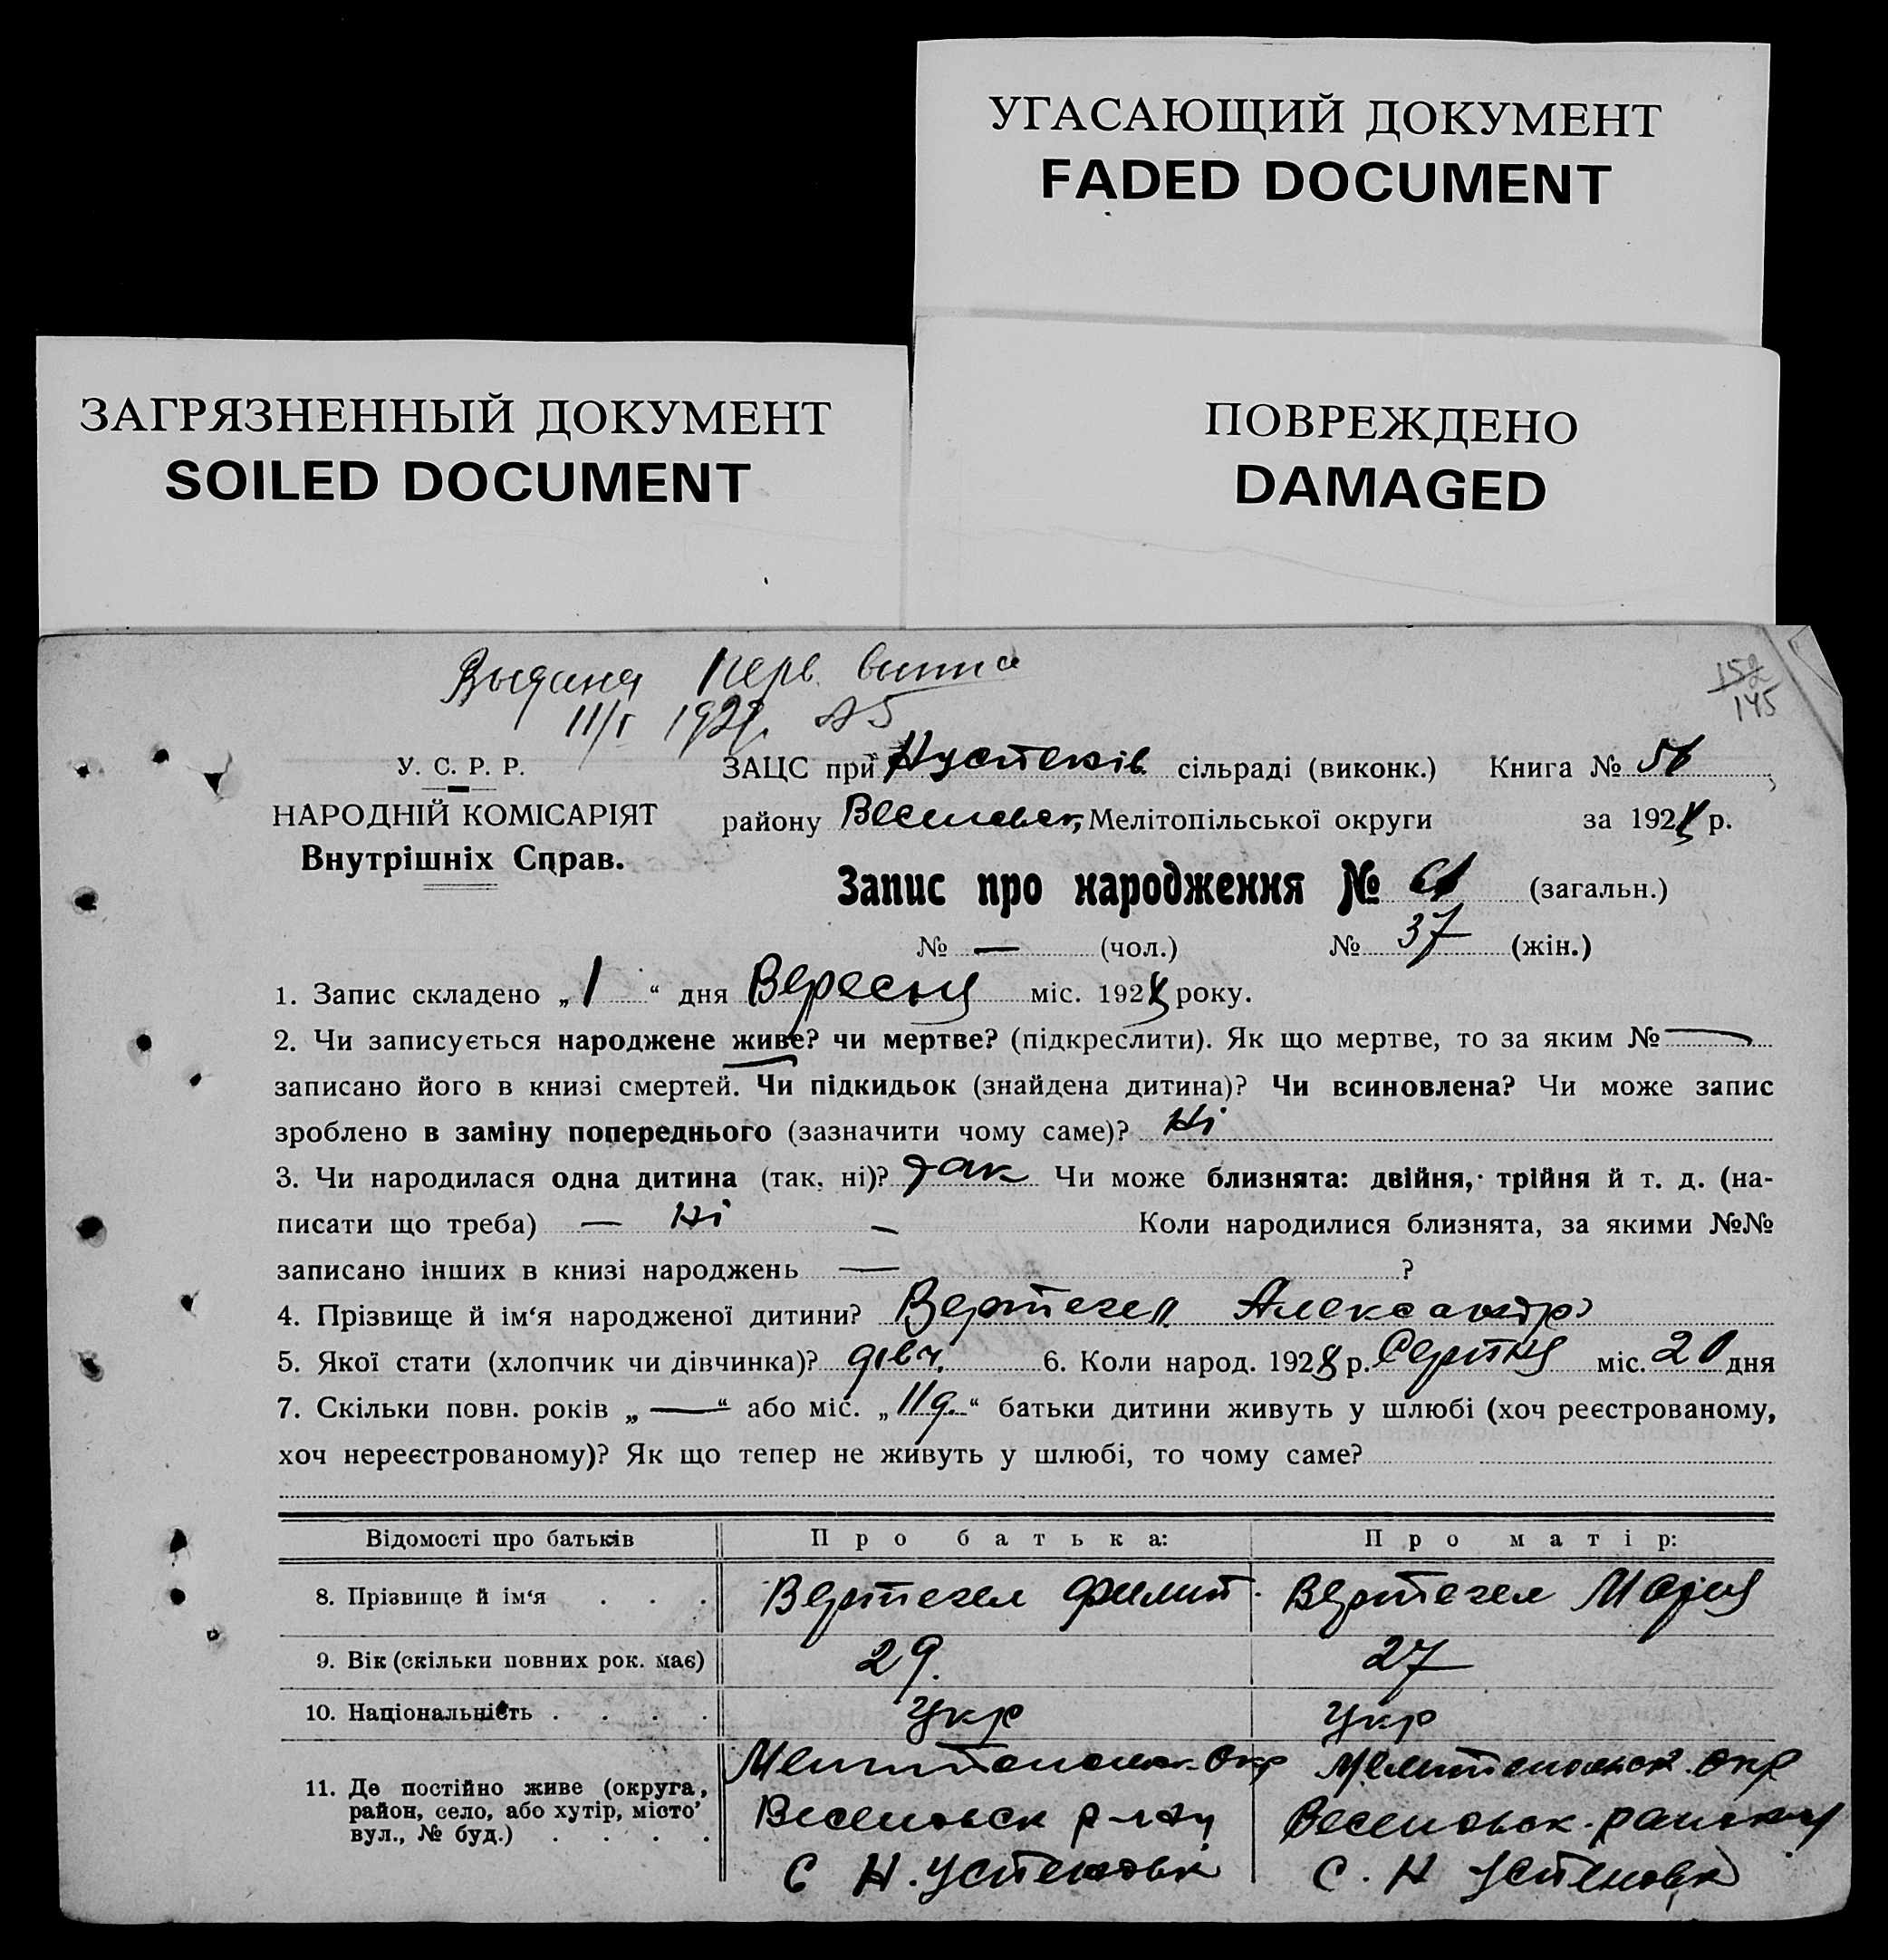 УГАСАЮЩИЙ ДОКУМЕНТ
FADED DOCUMENT
ЗАГРЯЗНЕННЫЙ ДОКУМЕНТ
SOILED DOCUMENT
ПОВРЕЖДЕНО
DAMAGED
Выдана
152
145
У. С. Р. Р.
НАРОДНІЙ КОМІСАРІЯТ
Внутрішніх Справ.
ЗАЦС при сільраді (виконк.) Книга №
району Веселовск, Мелітопільської округи за 1928 р.
Запис про народження № (загальн.)
№ — (чол.) № 37 (жін.)
1. Запис складено „ 1 “ дня Вересня міс. 1928 року.
2. Чи записується народжене живе? чи мертве? (підкреслити). Як що мертве, то за яким № —
записано його в книзі смертей. Чи підкидьок (знайдена дитина)? Чи всиновлена? Чи може запис
зроблено в заміну попереднього (зазначити чому саме)? Ні
3. Чи народилася одна дитина (так, ні)? Так Чи може близнята: двійня, трійня й т. д. (на-
писати що треба) — Ні — Коли народилися близнята, за якими №№
записано інших в книзі народжень — ?
4. Прізвище й ім‘я народженої дитини? Вертегел Александр
5. Якої стати (хлопчик чи дівчинка)? дівч. 6. Коли народ. 1928 р. Серпня міс. 20 дня
7. Скільки повн. років „ — “ або міс. „ 11 “ батьки дитини живуть у шлюбі (хоч реєстрованому,
хоч нереєстрованому)? Як що тепер не живуть у шлюбі, то чому саме?
Відомості про батьків Про батька: Про матір:
8. Прізвище й ім‘я . . . Вертегел Филип Вертегел Мария
9. Вік (скільки повних рок. має) 29. 27
10. Національність . . . . Укр Укр
11. Де постійно живе (округа, район, село, або хутір, місто’ вул., № буд.) . . . .
Мелитопольск. Окр Мелитопольск. Окр
Веселовск р-ну Веселовск. району
С Н. Устеновк С. Н Устеновк